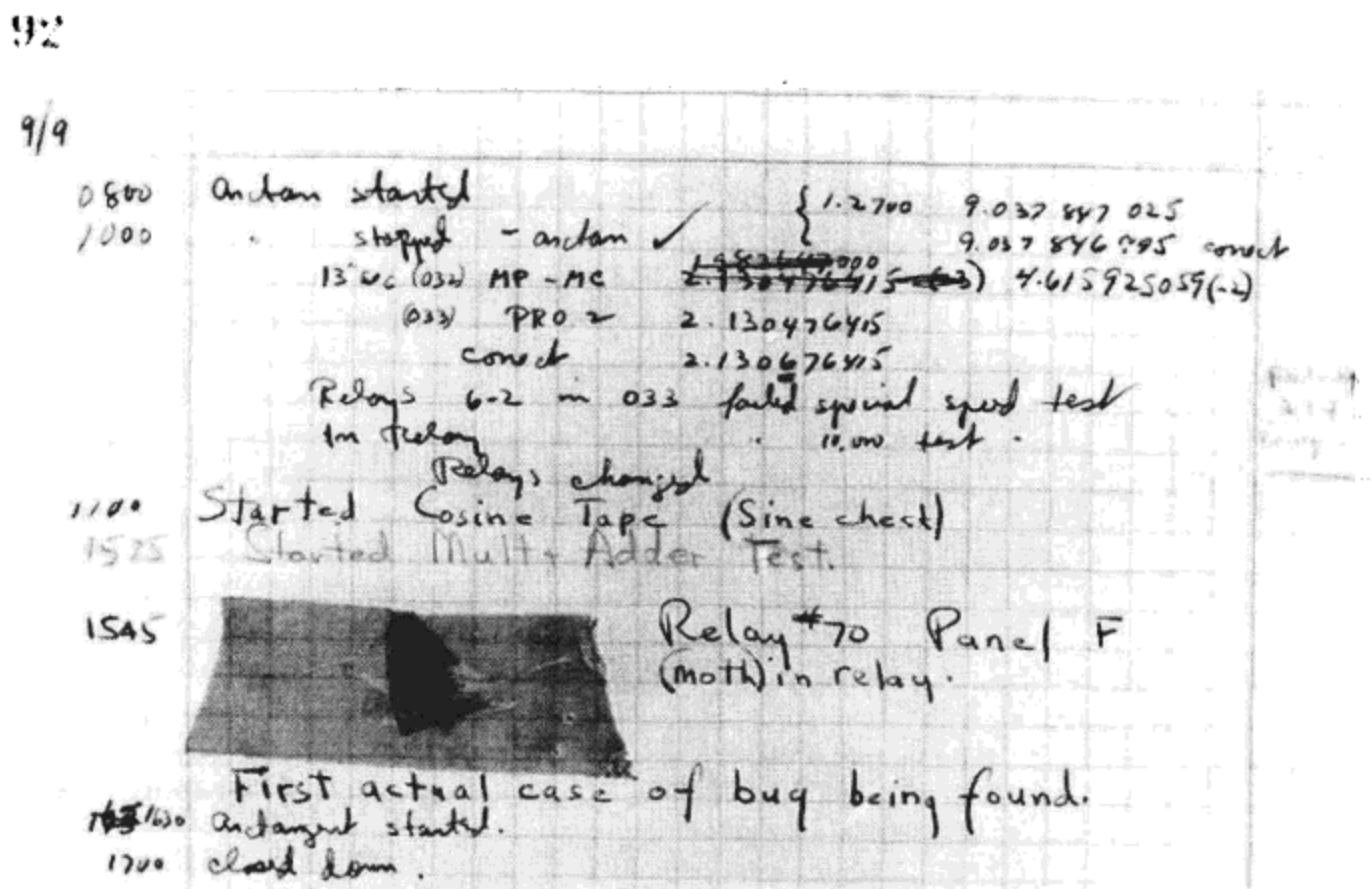 92
9/9
0800 antan started
1000 " stopped - antan ✓ { 1.2700 9.037 847 025
9.037 846 995 correct
13"uc (032) MP - MC 2.130476415 (-3) 4.615925059(-2)
(033) PRO 2 2.130476415
correct 2.130676415
Relays 6-2 in 033 failed special speed test
In Relay " 10,000 test .
Relays changed
1100 Started Cosine Tape (Sine check)
1525 Started Mult + Adder Test.
1545 Relay #70 Panel F
(moth) in relay.
First actual case of bug being found.
1630 antangent started.
1700 closed down .